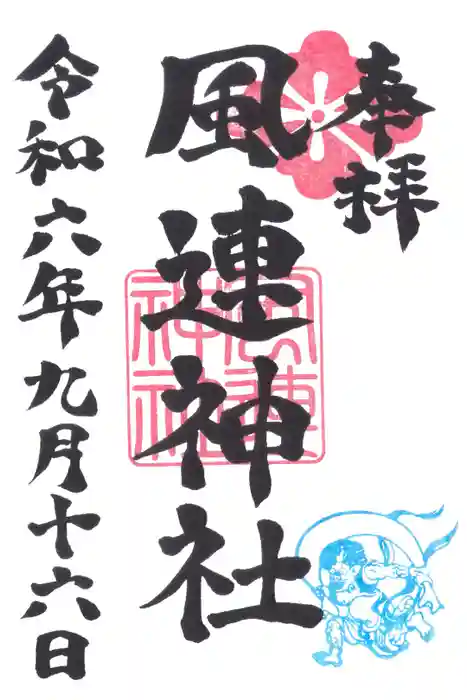 奉拝
風連神社
風連神社
令和六年九月十六日